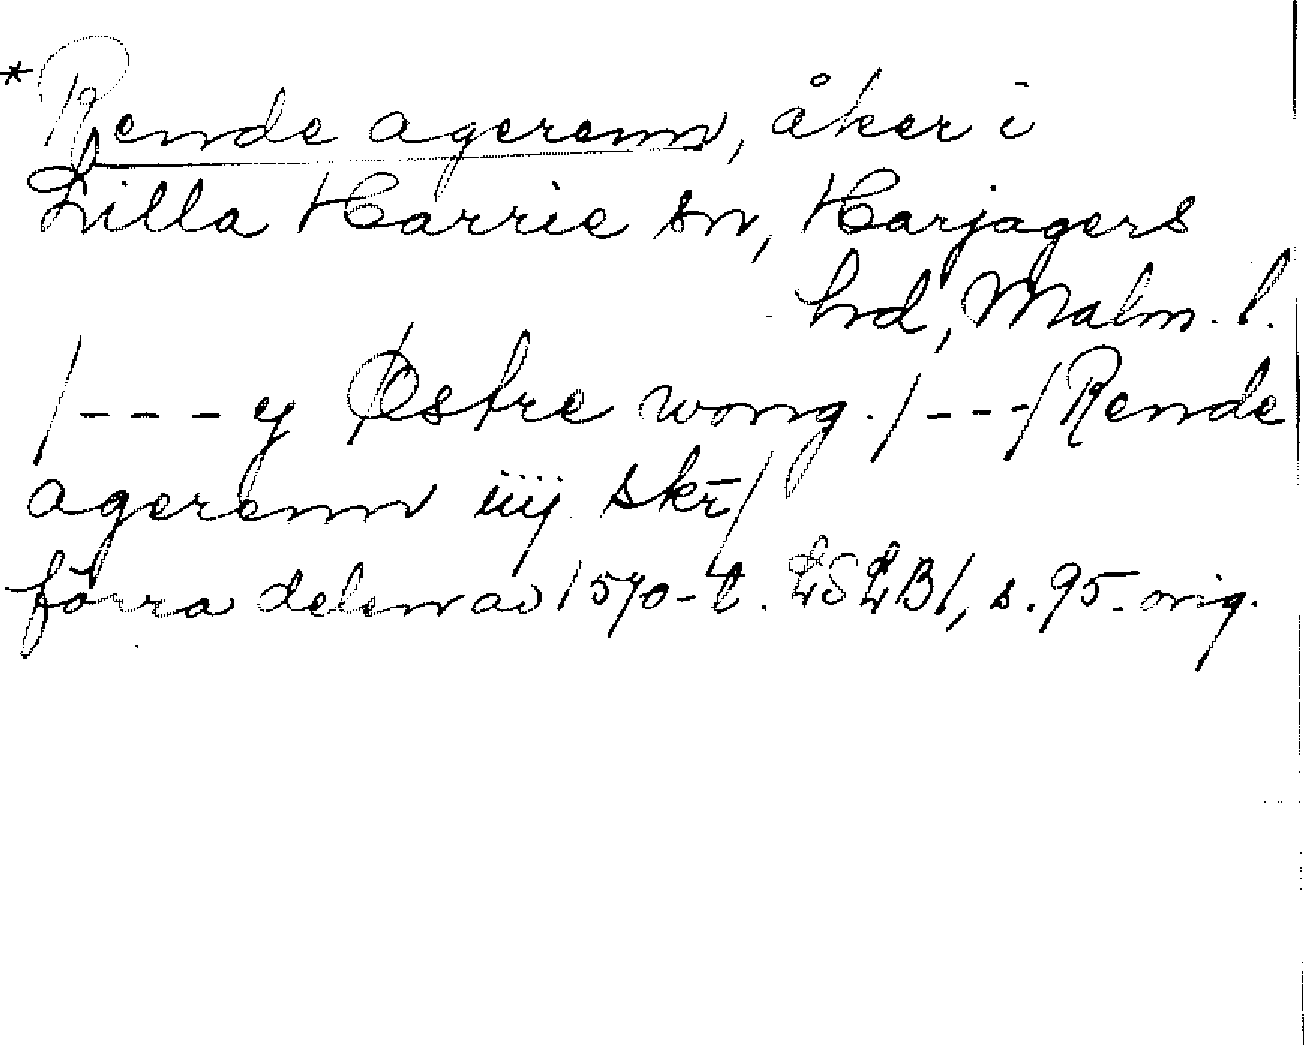 * Rende agerenn, åker i
Lilla Harrie sn, Harjagers
hd, Malm. l.
/---y Østre wong. /---/ Rende
agerenn iiij skr̄/
förra delen av 1570-t. LSLB1, s. 95. orig.